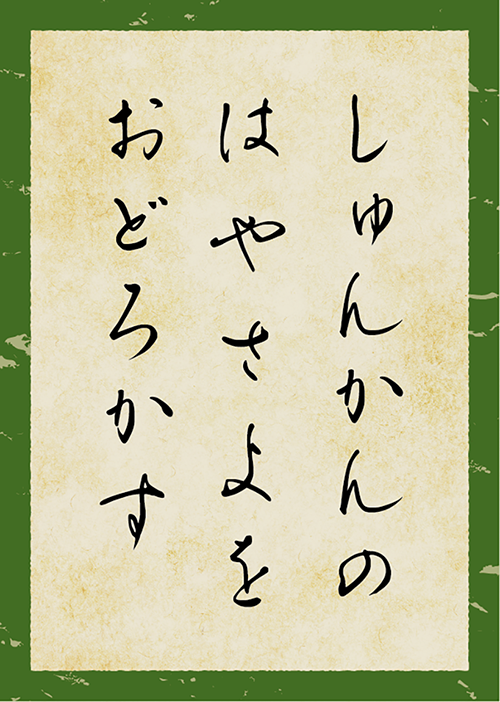 しゅんかんの
はやさよを
おどろかす